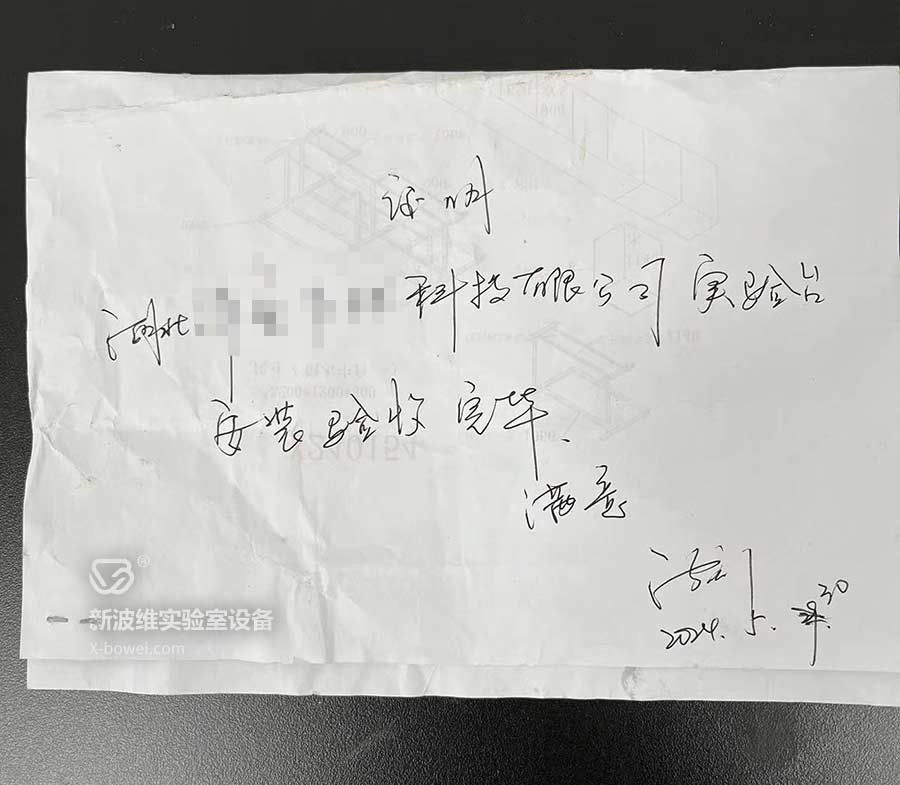 证明
湖北 科技有限公司实验台
安装验收完毕、
满意
2024.5. 30
新波维实验室设备
X-bowei.com